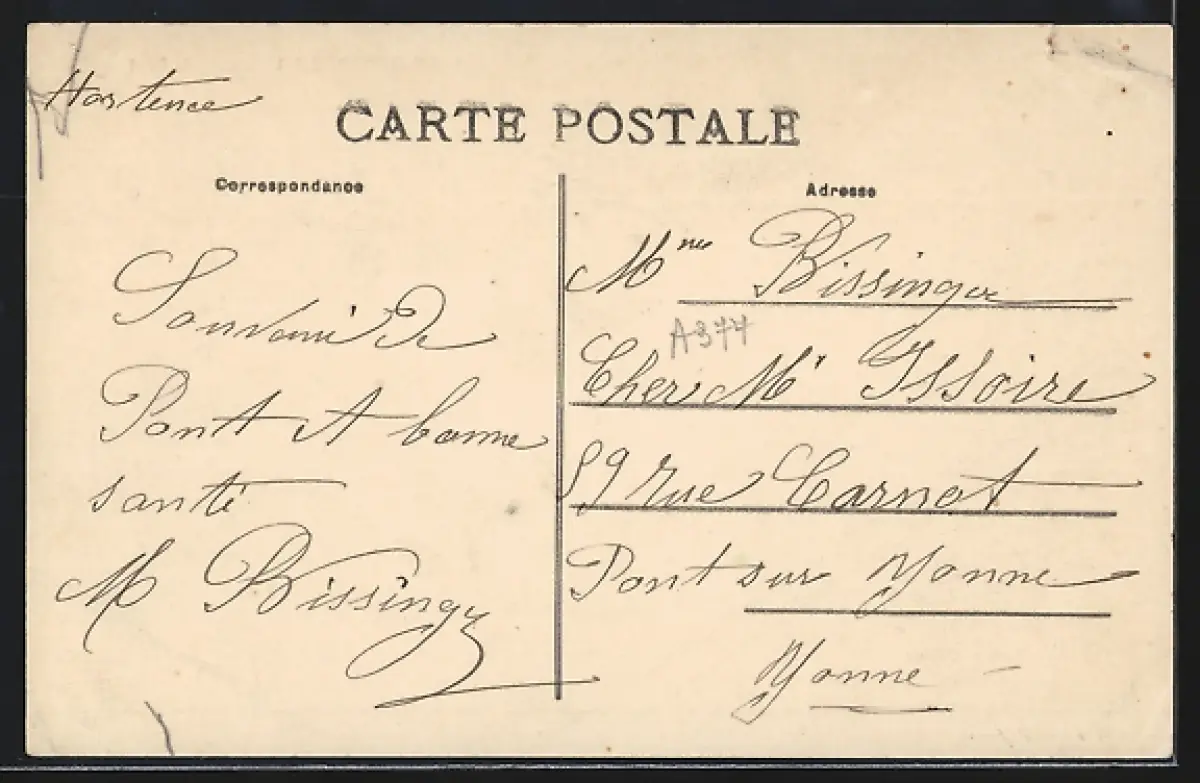 Hortence
CARTE POSTALE
Correspondance
Souveni de
Pont et bonne
santé
M Bissinger
Adresse
Mme Bissinger
A374
Cher Mr Issoire
89 rue Carnot
Pont sur Yonne
Yonne